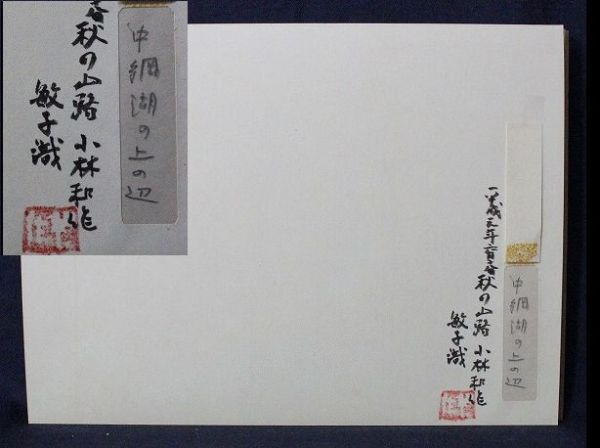 春秋の山路 小林和作
敏子識
沖綱湖の上の辺
秋の山路 小林和作
敏子識
沖綱湖の上の辺